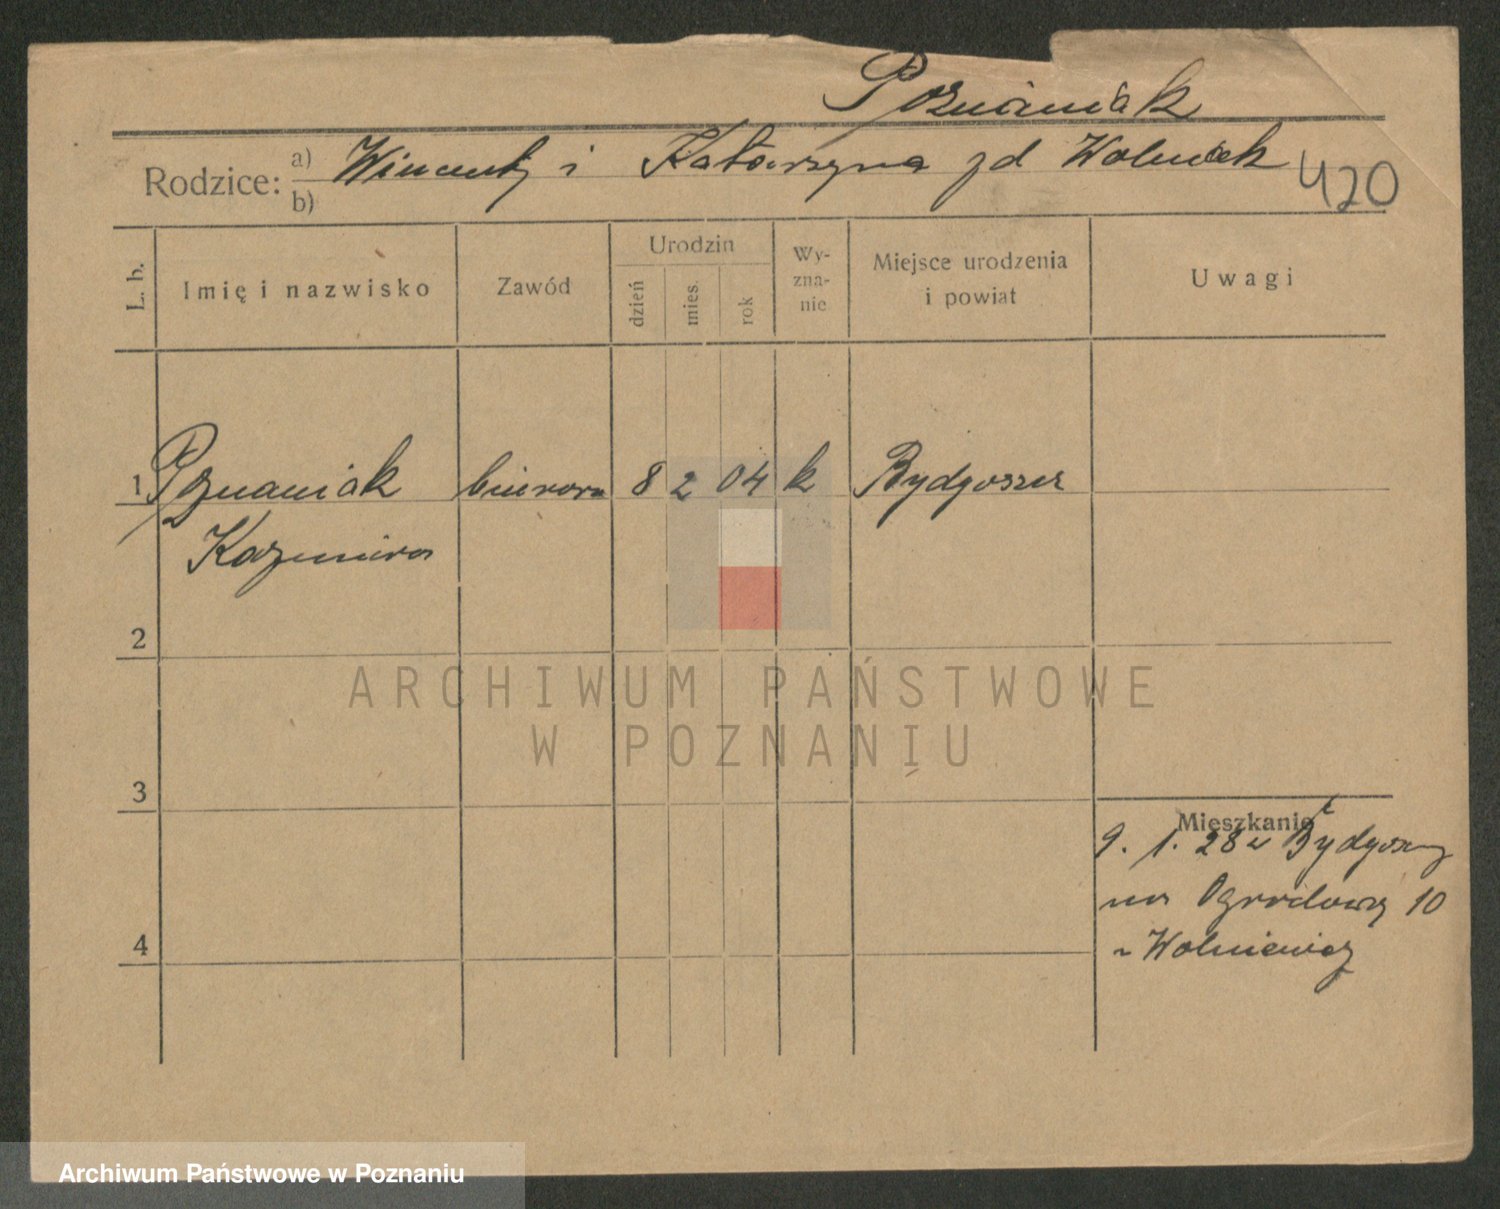 Poznaniak
Rodzice: a) Wincenty i Katarzyna zd Wolniak 420
b)
L. b. Imię i nazwisko Zawód Urodzin dzień mies. rok Wy-zna-nie Miejsce urodzenia i powiat Uwagi
1 Poznaniak biurowa 8 2 04 k Bydgoszcz
Kazimiera
2
ARCHIWUM PAŃSTWOWE
W POZNANIU
3
Mieszkanie
9. 1. 28 z Bydgoszczy
na Ogrodową 10
4
Wolniewicz
Archiwum Państwowe w Poznaniu